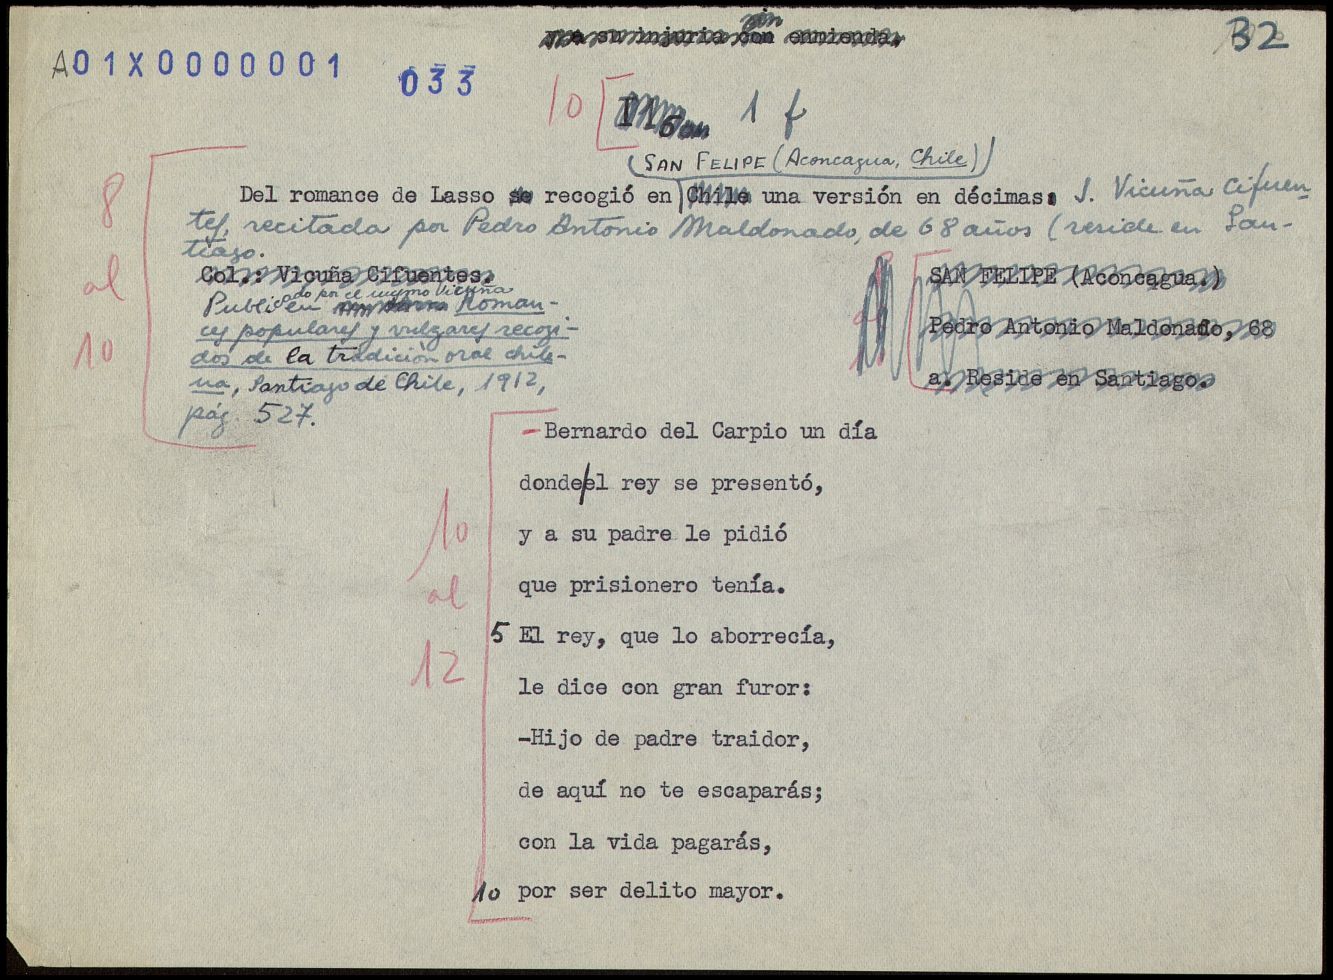 y a su injuria con enmienda.
sin
32
A01X0000001
033
10
1 f
SAN FELIPE (Aconcagua, Chile)
8
al
10
Del romance de Lasso se recogió en Chile una versión en décimas: J. Vicuña Cifuen-
tes, recitada por Pedro Antonio Maldonado, de 68 años (reside en San-
tiago.
Col.: Vicuña Cifuentes.
Publicado por el mismo Vicuña
en Roman-
ces populares y vulgares recogi-
dos de la tradición oral chile-
na, Santiago de Chile, 1912,
pág. 527.
SAN FELIPE (Aconcagua.)
Pedro Antonio Maldonado, 68
a. Reside en Santiago.
10
al
12
-Bernardo del Carpio un día
donde el rey se presentó,
y a su padre le pidió
que prisionero tenía.
5 El rey, que lo aborrecía,
le dice con gran furor:
-Hijo de padre traidor,
de aquí no te escaparás;
con la vida pagarás,
10 por ser delito mayor.